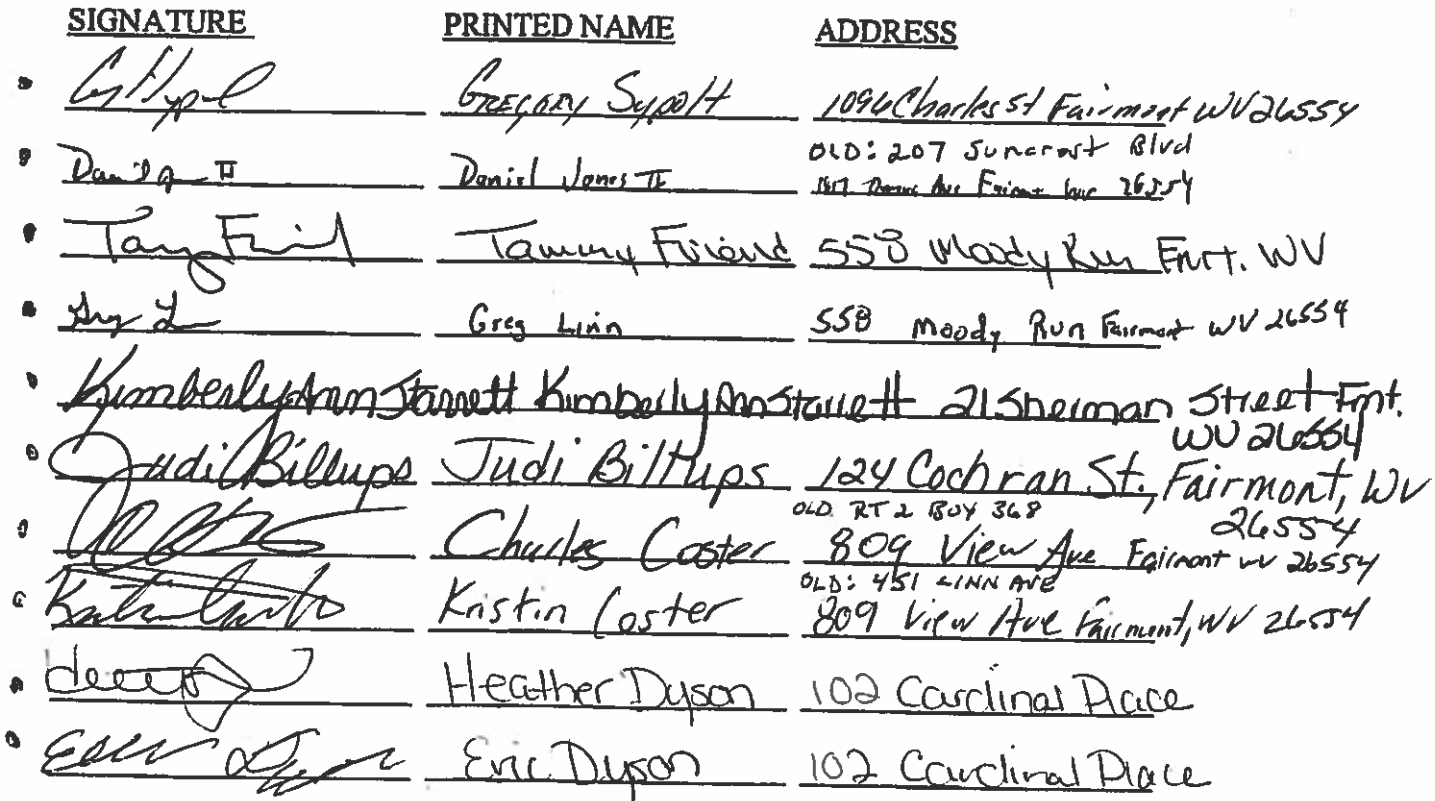 SIGNATURE PRINTED NAME ADDRESS
Gregory Sypolt 1096 Charles St Fairmont WV 26554
OLD: 207 Suncrest Blvd
Daniel Jones II Daniel Jones II Ave Fairmont 26554
Tammy Friend Tammy Friend 558 Moody Run Fmt. WV
Greg Linn Greg Linn 558 Moody Run Fairmont WV 26554
Kimberly Ann Starrett Kimberly Ann Starrett 21 Sherman Street Fmt.
WV 26554
Judi Billups Judi Billups 124 Cochran St., Fairmont, WV
26554
OLD RT 2 BOX 368
Charles Coster 809 View Ave Fairmont WV 26554
OLD: 451 LINN AVE
Kristin Coster 809 View Ave Fairmont, WV 26554
Heather Dyson 102 Cardinal Place
Eric Dyson Eric Dyson 102 Cardinal Place